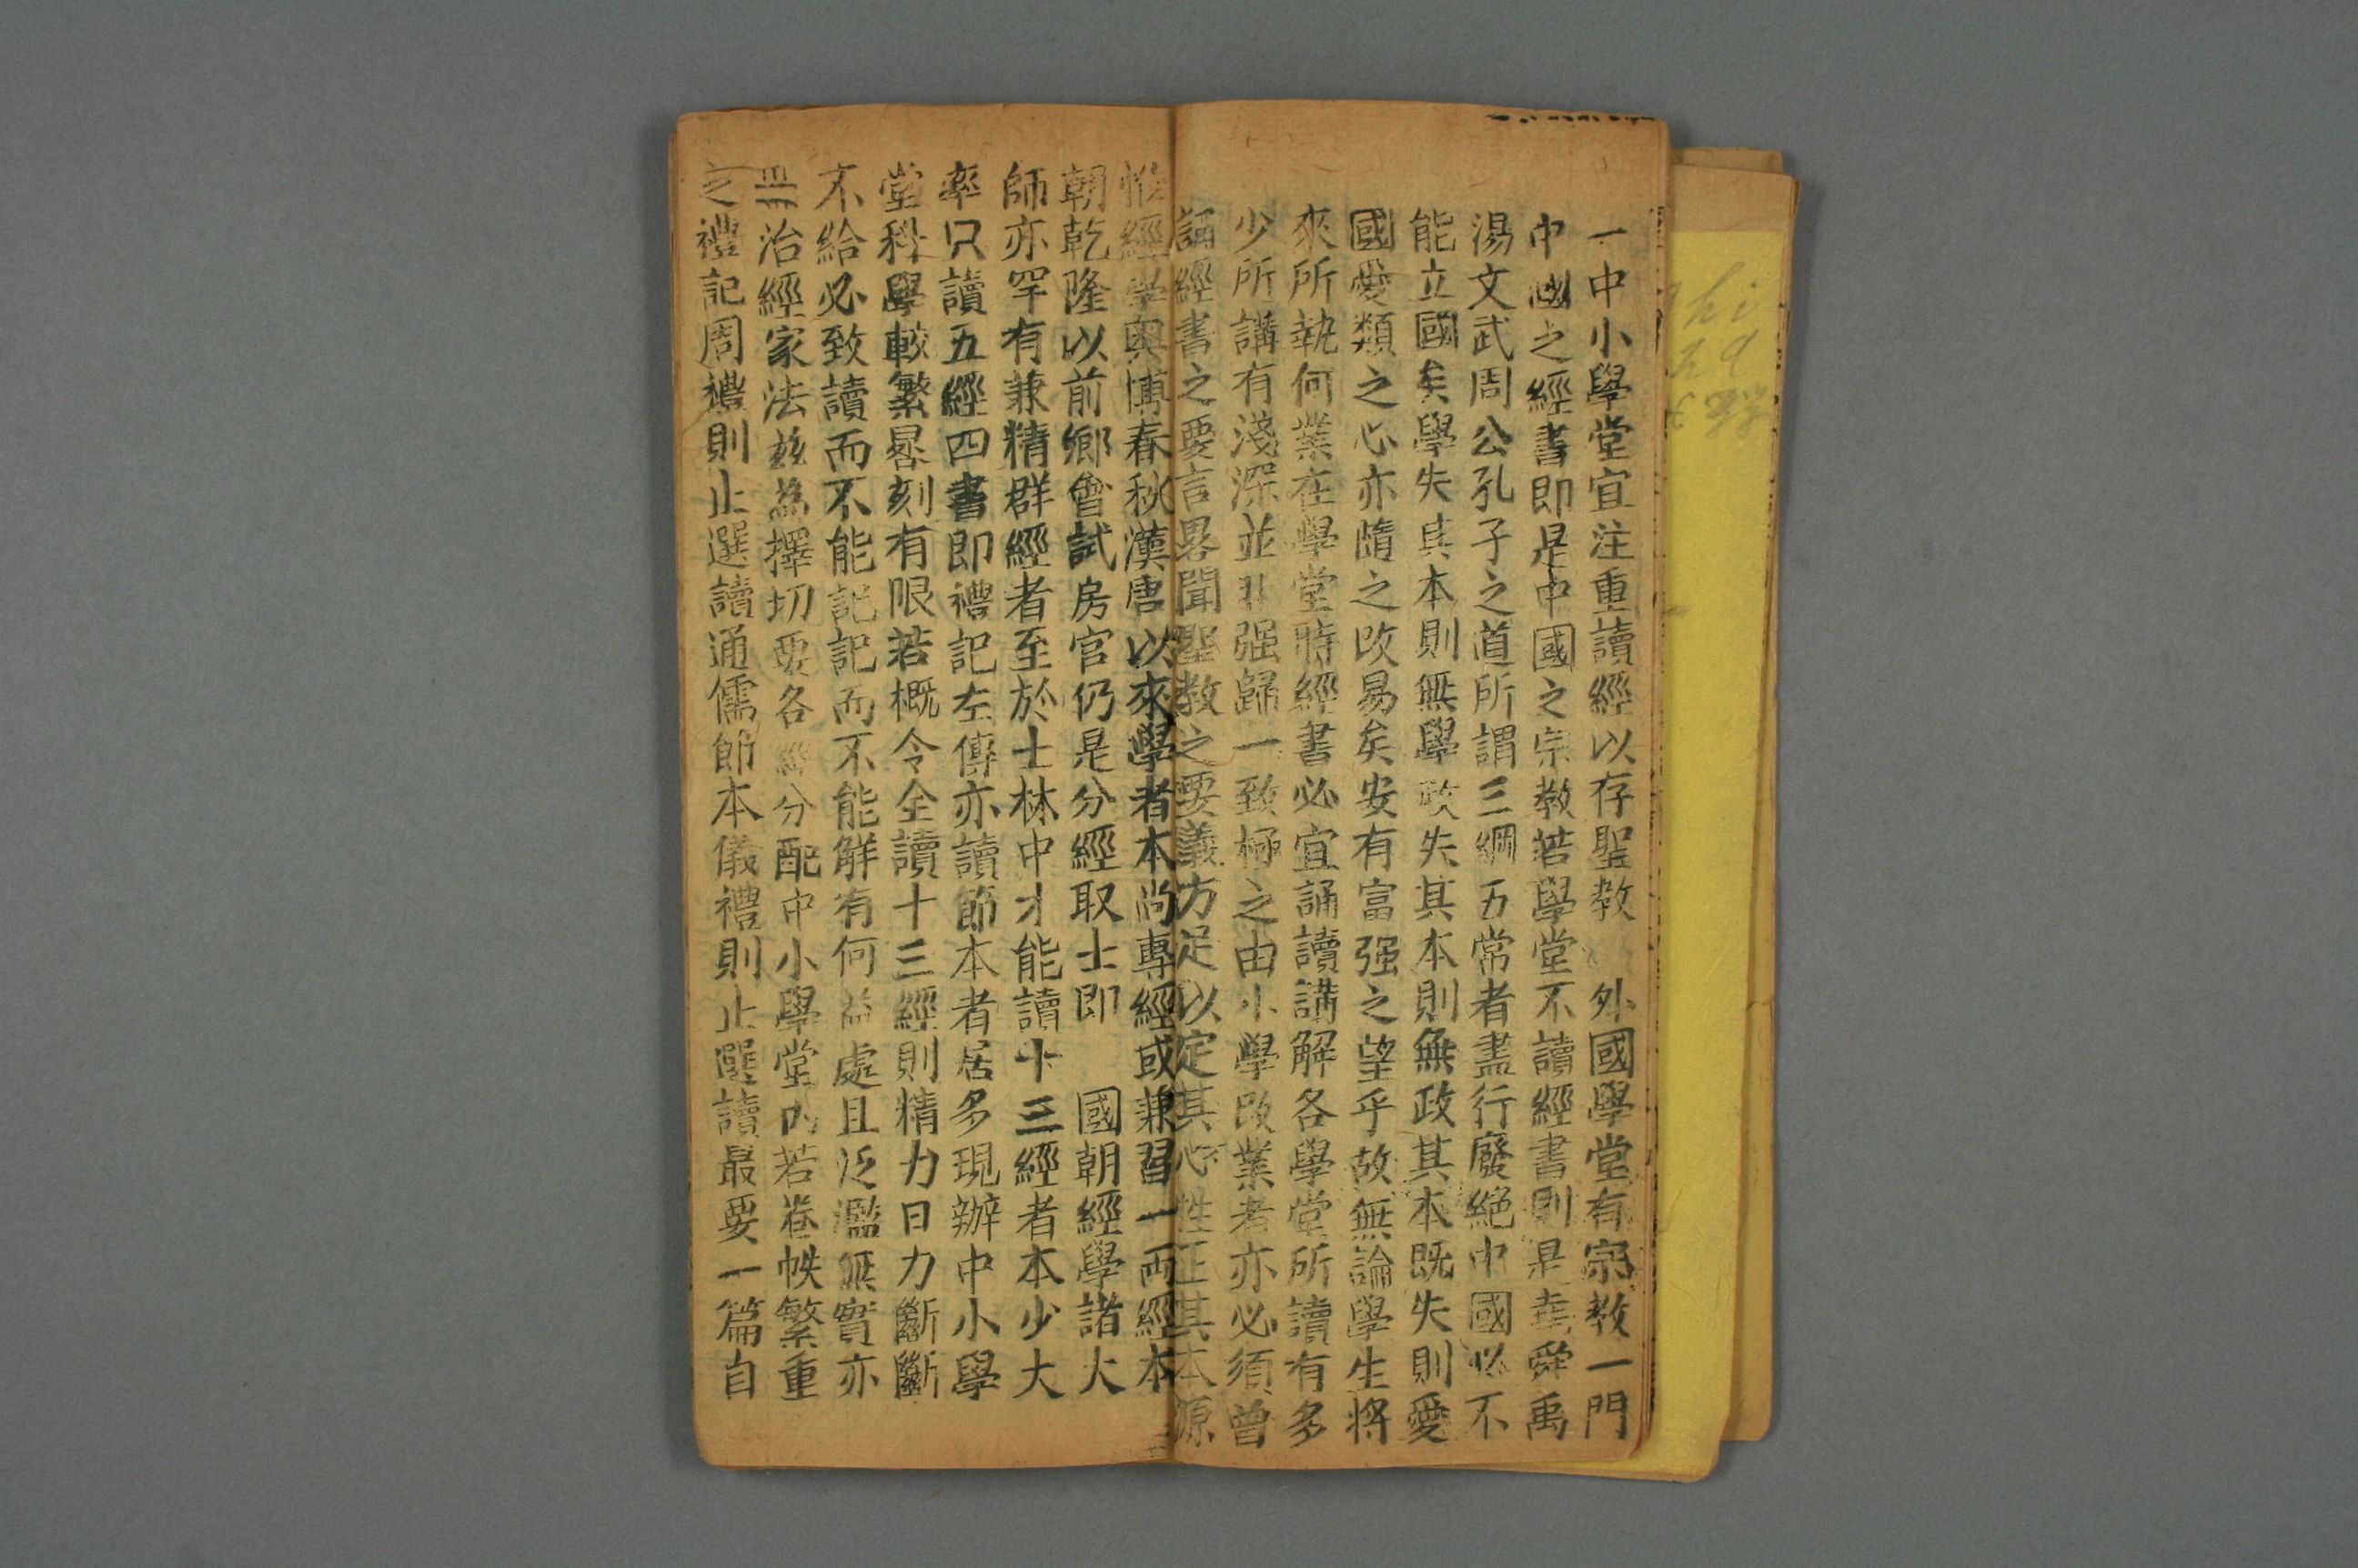 一中小學堂宜注重讀經以存聖教 外國學堂有宗教一門
中國之經書即是中國之宗教若學堂不讀經書則是堯舜禹
湯文武周公孔子之道所謂三綱五常者盡行廢絶中國必不
能立國矣學失其本則無學政失其本則無政其本既失則愛
國愛類之心亦隨之改易矣安有富强之望乎故無論學生將
來所執何業在學堂時經書必宜誦讀講解各學堂所讀有多
少所講有淺深並非强歸一致極之由小學改業者亦必須曾
誦經書之要言畧聞聖教之要義方足以定其心性正其本源
惟經學奥博春秋漢唐以來學者本尚專經或兼習一両經本
朝乾隆以前鄉會試房官仍是分經取士即 國朝經學諸大
師亦罕有兼精群經者至於士林中才能讀十三經者本少大
率只讀五經四書即禮記左傳亦讀節本者居多現辦中小學
堂科學較繁晷刻有限若概令全讀十三經則精力日力斷斷
不給必致讀而不能記記而不能解有何益處且泛濫無實亦
非治經家法兹為擇切要各經分配中小學堂内若卷帙繁重
之禮記周禮則止選讀通儒節本儀禮則止選讀最要一篇自